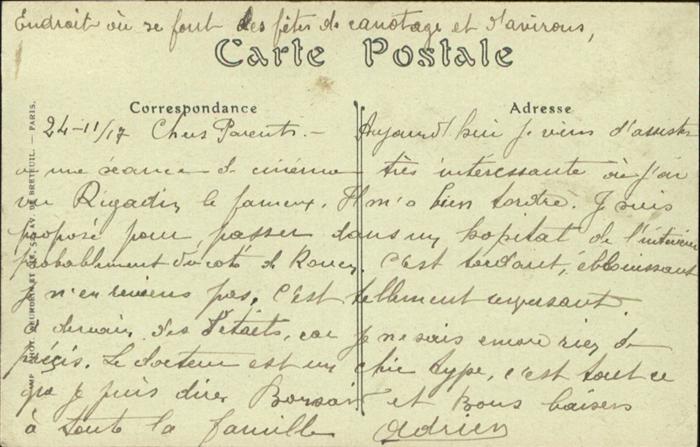 Endroit où se font des fêtes de canotage et d'avirons,
Carte Postale
Correspondance
Adresse
24-11/17 Chers Parents. - Aujourd'hui je viens d'assister
a une séance de cinéma très interessante où j'ai
vu Rigadin le fameux. Il m'a bien tordre. Je suis
proposé pour passer dans un hopital de l'interieur
probablement du coté de Rouen. C'est tordant, éblouissant
je n'en reviens pas, c'est tellement amusant.
à demain des détails, car je ne sais encore rien de
précis. Le docteur est un chic type, c'est tout ce
que je puis dire. Bonsoir et bons baisers
à toute la famille Adrien
AV. DE BRETEUIL. — PARIS.